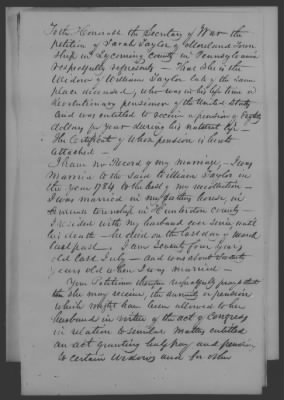 To the Honorable the Secretary of War the
petition of Sarah Taylor of Moreland Town
ship in Lycoming County in Pennsylvania
respectfully represents — That she is the
Widow of William Taylor late of the same
place deceased, who was in his life time a
Revolutionary pensioner of the United States
and was entitled to receive a pension of Eighty
dollars per year during his natural life —
the Certificate of Whose pension is hereto
attached —
I have no Record of my marriage, I was
Married to the said William Taylor in
the year 1784 to the best of my recollection —
I was married in my fathers house, in
township in Hunterdon County —
I resided with my husband ever since until
his death — he died on the last day of March
last past. I am Seventy four years
old last July — and was about Twenty
years old when I was married —
Your Petitioner therefore respectfully prays that
she may receive the annuity or pension
which might have been allowed to her
husband in virtue of the act of Congress
in relation to similar matters entitled
an act granting half pay and pension
to certain Widows and for other